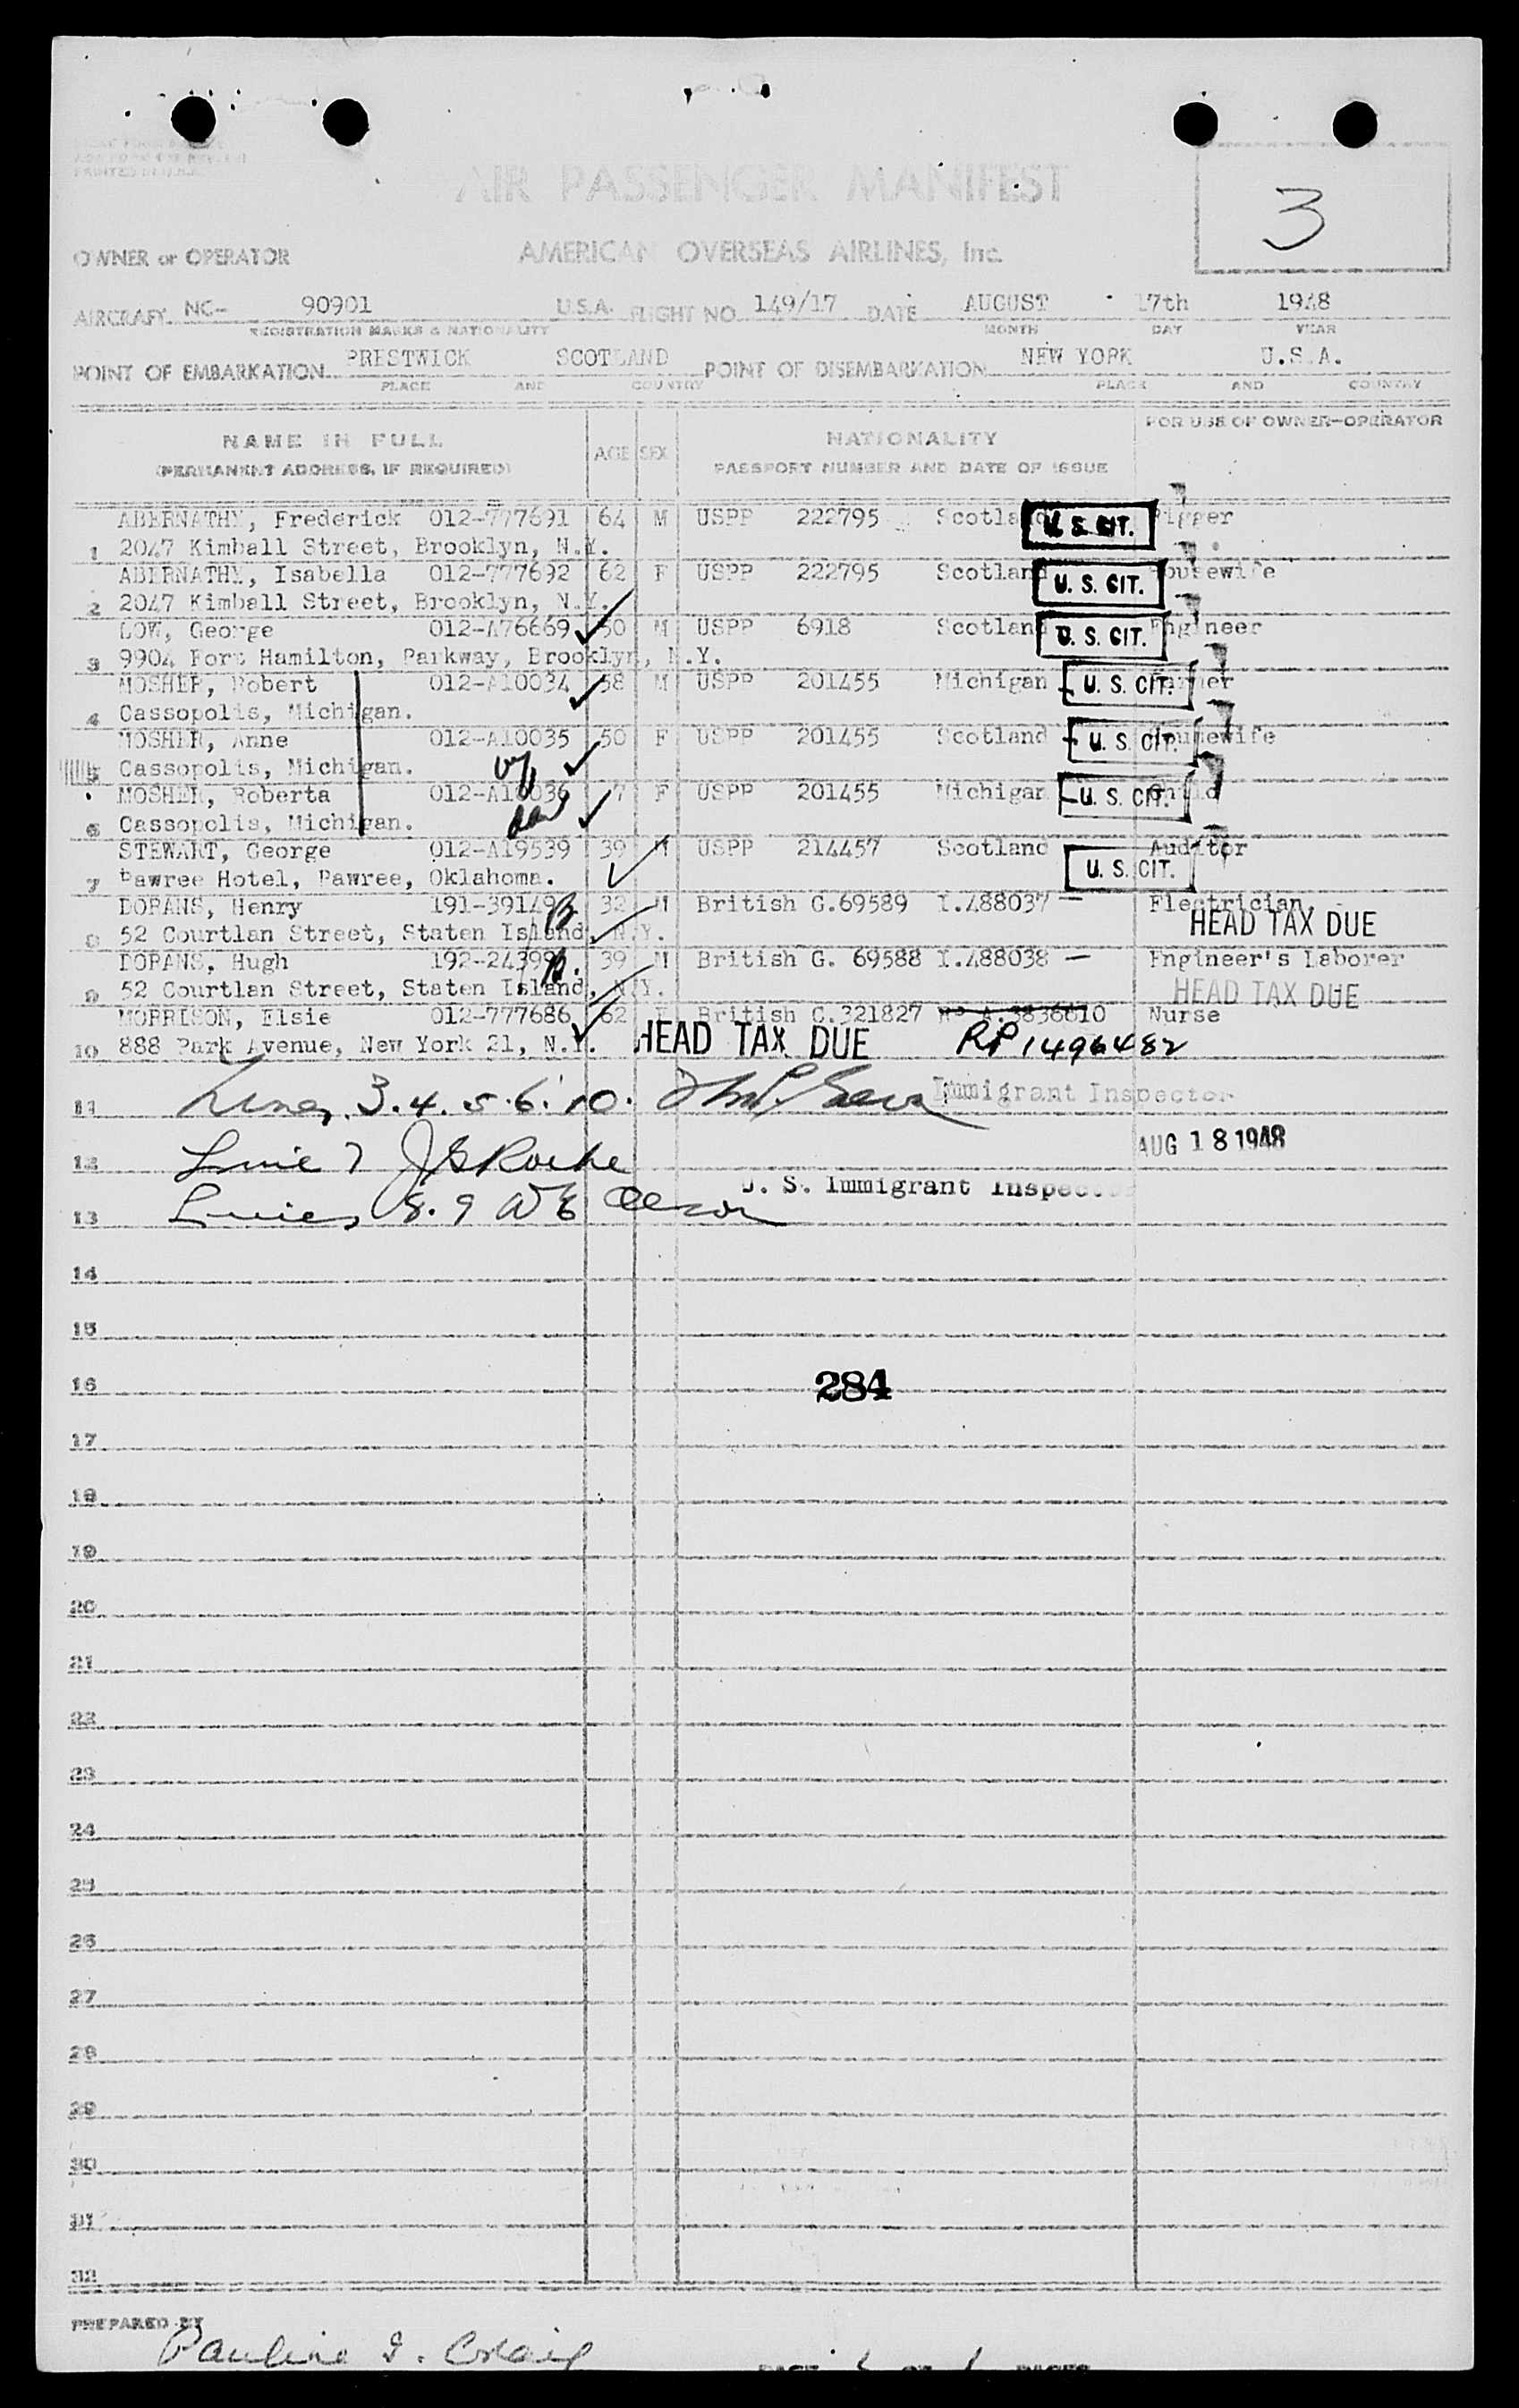 PRINTED IN U.S.A.
AIR PASSENGER MANIFEST
3
OWNER or OPERATOR AMERICAN OVERSEAS AIRLINES, Inc.
AIRCRAFT NC- 90901 U.S.A. FLIGHT NO. 149/17 DATE AUGUST 17th 1948
REGISTRATION MARKS & NATIONALITY MONTH DAY YEAR
POINT OF EMBARKATION PRESTWICK SCOTLAND POINT OF DISEMBARKATION NEW YORK U.S.A.
PLACE AND COUNTRY PLACE AND COUNTRY
NAME IN FULL AGE SEX NATIONALITY FOR USE OF OWNER-OPERATOR
(PERMANENT ADDRESS, IF REQUIRED) PASSPORT NUMBER AND DATE OF ISSUE
ABERNATHY, Frederick 012-777691 64 M USPP 222795 Scotland U. S. CIT. Rigger
1 2047 Kimball Street, Brooklyn, N.Y.
ABERNATHY, Isabella 012-777692 62 F USPP 222795 Scotland U. S. CIT. Housewife
2 2047 Kimball Street, Brooklyn, N.Y.
LOW, George 012-A76669 50 M USPP 6918 Scotland U. S. CIT. Engineer
3 9904 Fort Hamilton, Parkway, Brooklyn, N.Y.
MOSHER, Robert 012-A10034 58 M USPP 201455 Michigan U. S. CIT. Farmer
4 Cassopolis, Michigan.
MOSHER, Anne 012-A10035 50 F USPP 201455 Scotland U. S. CIT. Housewife
5 Cassopolis, Michigan.
MOSHER, Roberta 012-A10036 7 F USPP 201455 Michigan U. S. CIT. Child
6 Cassopolis, Michigan.
STEWART, George 012-A19539 39 M USPP 214457 Scotland Auditor
7 Pawree Hotel, Pawree, Oklahoma. U. S. CIT.
DORANS, Henry 191-39149 32 M British G.69589 I.488037 — Electrician.
8 52 Courtlan Street, Staten Island, N.Y. HEAD TAX DUE
DORANS, Hugh 192-24399 39 M British G. 69588 I.488038 — Engineer's Laborer
9 52 Courtlan Street, Staten Island, N.Y. HEAD TAX DUE
MORRISON, Elsie 012-777686 62 F British C.321827 A.3836610 Nurse
10 888 Park Avenue, New York 21, N.Y. HEAD TAX DUE RP 1496482
11 Lines 3.4.5.6.10. Immigrant Inspector
12 Line 7 JG Roche AUG 18 1948
U. S. Immigrant Inspector
13 Lines 8.9 W E Olson
14
15
16 284
17
18
19
20
21
22
23
24
25
26
27
28
29
30
31
32
PREPARED BY Pauline I. Craig